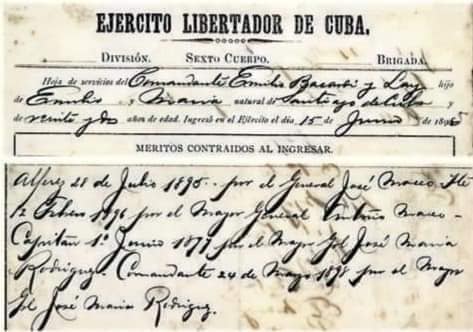 EJERCITO LIBERTADOR DE CUBA.
DIVISIÓN. SEXTO CUERPO. BRIGADA.
Hoja de servicios del Comandante Emilio Bacardí y Lay hijo
de Emilio y María natural de Santiago de Cuba y
de veinte y dos años de edad. Ingresó en el Ejército el día 15 de Junio de 1895
MERITOS CONTRAIDOS AL INGRESAR.
Alferez 28 de Julio 1895. por el General José Maceo. Tte
12 Febrero 1896 por el Mayor General Antonio Maceo-
Capitán 1º Junio 1877 por el Mayor Gl José Maria
Rodriguez. Comandante 24 de Mayo 1898 por el Mayor
Gl José Maria Rodriguez.